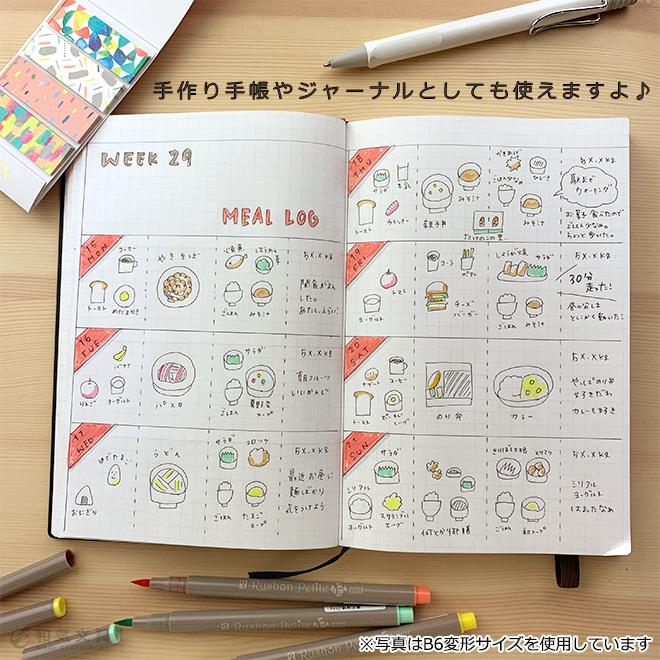 手作り手帳やジャーナルとしても使えますよ♪
WEEK 29
MEAL LOG
15 MON
コーヒー
トースト
めだまやき
やきそば
ごはん
みそ汁
5X.Xkg
間食がまん
した。
あたし、えらい!
16 TUE
バナナ
りんご
ヨーグルト
パスタ
サラダ
ごはん
スープ
5X.Xkg
朝フルーツ
いいかんじ
17 WED
ゆでたまご
おにぎり
うどん
サラダ
コロッケ
ごはん
たまご
スープ
5X.Xkg
最近お昼に
麺ばかり
気をつけよう
18 THU
サラダ
牛乳
トースト
ウインナー
親子丼
みそ汁
たけのこの里
かきあげ
ごはん少なめ
ひじき
みそ汁
5X.Xkg
駅まで
ウォーキング
お菓子食べたので
ごはん少なめ。
ちょっと歩いた。
19 FRI
トマト
ヨーグルト
コーラ
ポテト
チーズ
バーガー
しょうが焼
サラダ
ごはん
みそ汁
5X.Xkg
30分
走った!
昼の分は
とにかく動いた!
20 SAT
サラダ
コーヒー
トースト
のり弁
カレー
5X.Xkg
やっぱりのり弁
カレーも好き
21 SUN
サラダ
シリアル
ヨーグルト
スクランブル
エッグ
ごはん
和スープ
5X.Xkg
シリアル
ヨーグルト
Rushon Petite
Rushon Petite
Rushon Petite
和気文具
※写真はB6変形サイズを使用しています